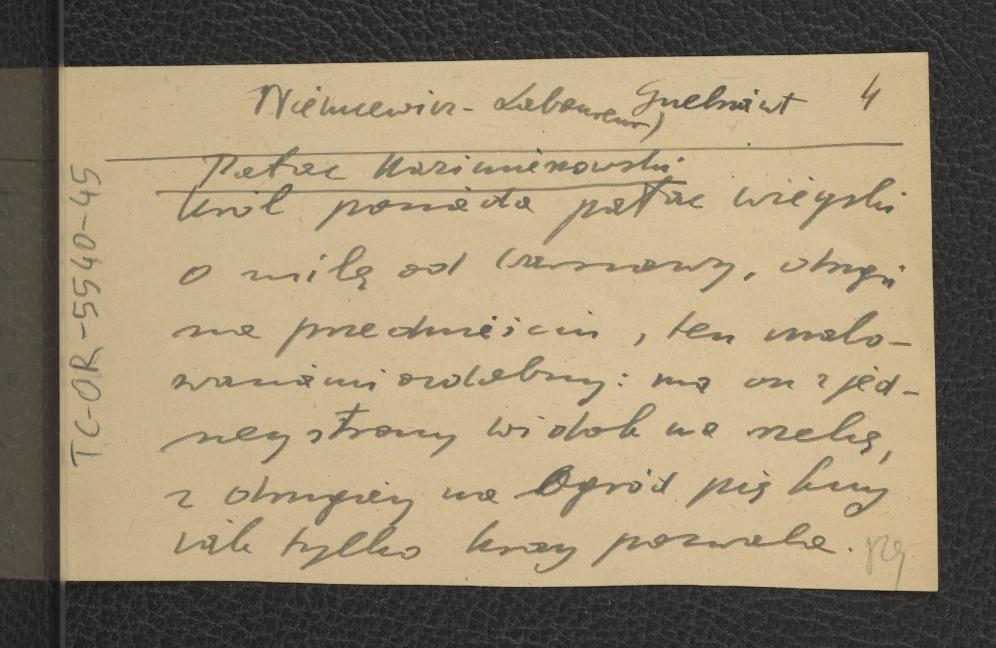 Niemcewicz - Laboureur) Guebriant 4
Pałac Kazimirowski
Król posiada pałac wieyski
o milę od Warszawy, drugi
na przedmieściu, ten malo-
waniami ozdobny: ma on z jed-
ney strony widok na rzekę,
z drugiey na Ogród piękny
iak tylko kray pozwala.
TC-OR-5540-45